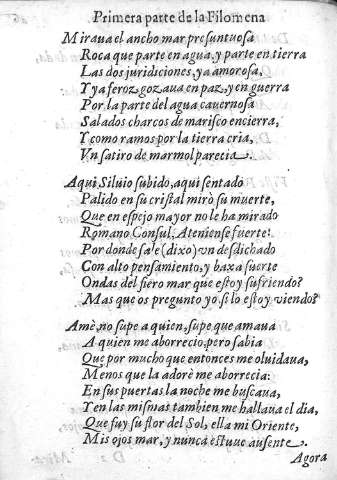 Primera parte de la Filomena
Miraua el ancho mar presuntuosa
Roca que parte en agua, y parte en tierra
Las dos juridiciones, ya amorosa,
Y ya feroz gozaua en paz, y en guerra
Por la parte del agua cauernosa
Salados charcos de marisco encierra,
Y como ramos por la tierra cria,
Vn satiro de marmol parecia.
Aqui Siluio subido, aqui sentado
Palido en su cristal mirò su muerte,
Que en espejo mayor no le ha mirado
Romano Consul, Ateniense fuerte:
Por donde sale (dixo) vn desdichado
Con alto pensamiento, y baxa suerte
Ondas del fiero mar que estoy sufriendo?
Mas que os pregunto yo, si lo estoy viendo?
Amè, no supe a quien, supe que amaua
A quien me aborrecio, pero sabia
Que por mucho que entonces me oluidaua,
Menos que la adorè me aborrecia:
En sus puertas la noche me buscaua,
Y en las mismas tambien me hallaua el dia,
Que fuy su flor del Sol, ella mi Oriente,
Mis ojos mar, y nunca estuue ausente.
Agora